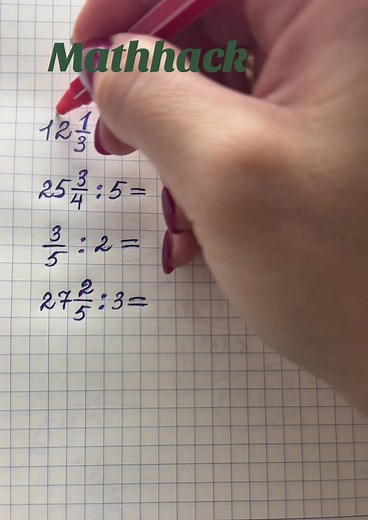 Mathhack
12 1/3
25 3/4 : 5 =
3/5 : 2 =
27 2/5 : 3 =